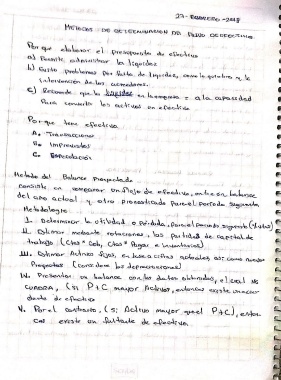 27-FEBRERO-2018
METODOS DE DETERMINACION DE FLUJO DE EFECTIVO
Por que elaborar el presupuesto de efectivo
a) Permite administrar la liquidez
b) Evita problemas por falta de liquidez, como la quiebra y la
intervención de los acreedores.
c) Recuerde que la liquidez es la a la capacidad
Para convertir los activos en efectivo
Por que tener efectivo
A. Transacciones
B. Imprevistos
C. Especulación
Metodo del Balance Proyectado
consiste en comparar un flujo de efectivo, entre un balance
del año actual y otro pronosticado para el periodo siguiente
Metodologia
I. Determinar la utilidad o perdida, para el periodo siguiente
II. Estimar mediante rotaciones, las partidas de capital de
trabajo (Ctas * Cob, Ctas * Pagar e inventarios)
III. Estimar Activos fijos, en base a cifras actuales así como nuevos
Proyectos (considere las depreciaciones)
IV. Presentar un balance con los datos obtenidos, el cual no
CUADRA, (si P+C mayor Activos, entonces existe un exce-
dente de efectivo
V. Por el contrario, (si Activo mayor que el P+C), enton-
ces existe un faltante de efectivo.